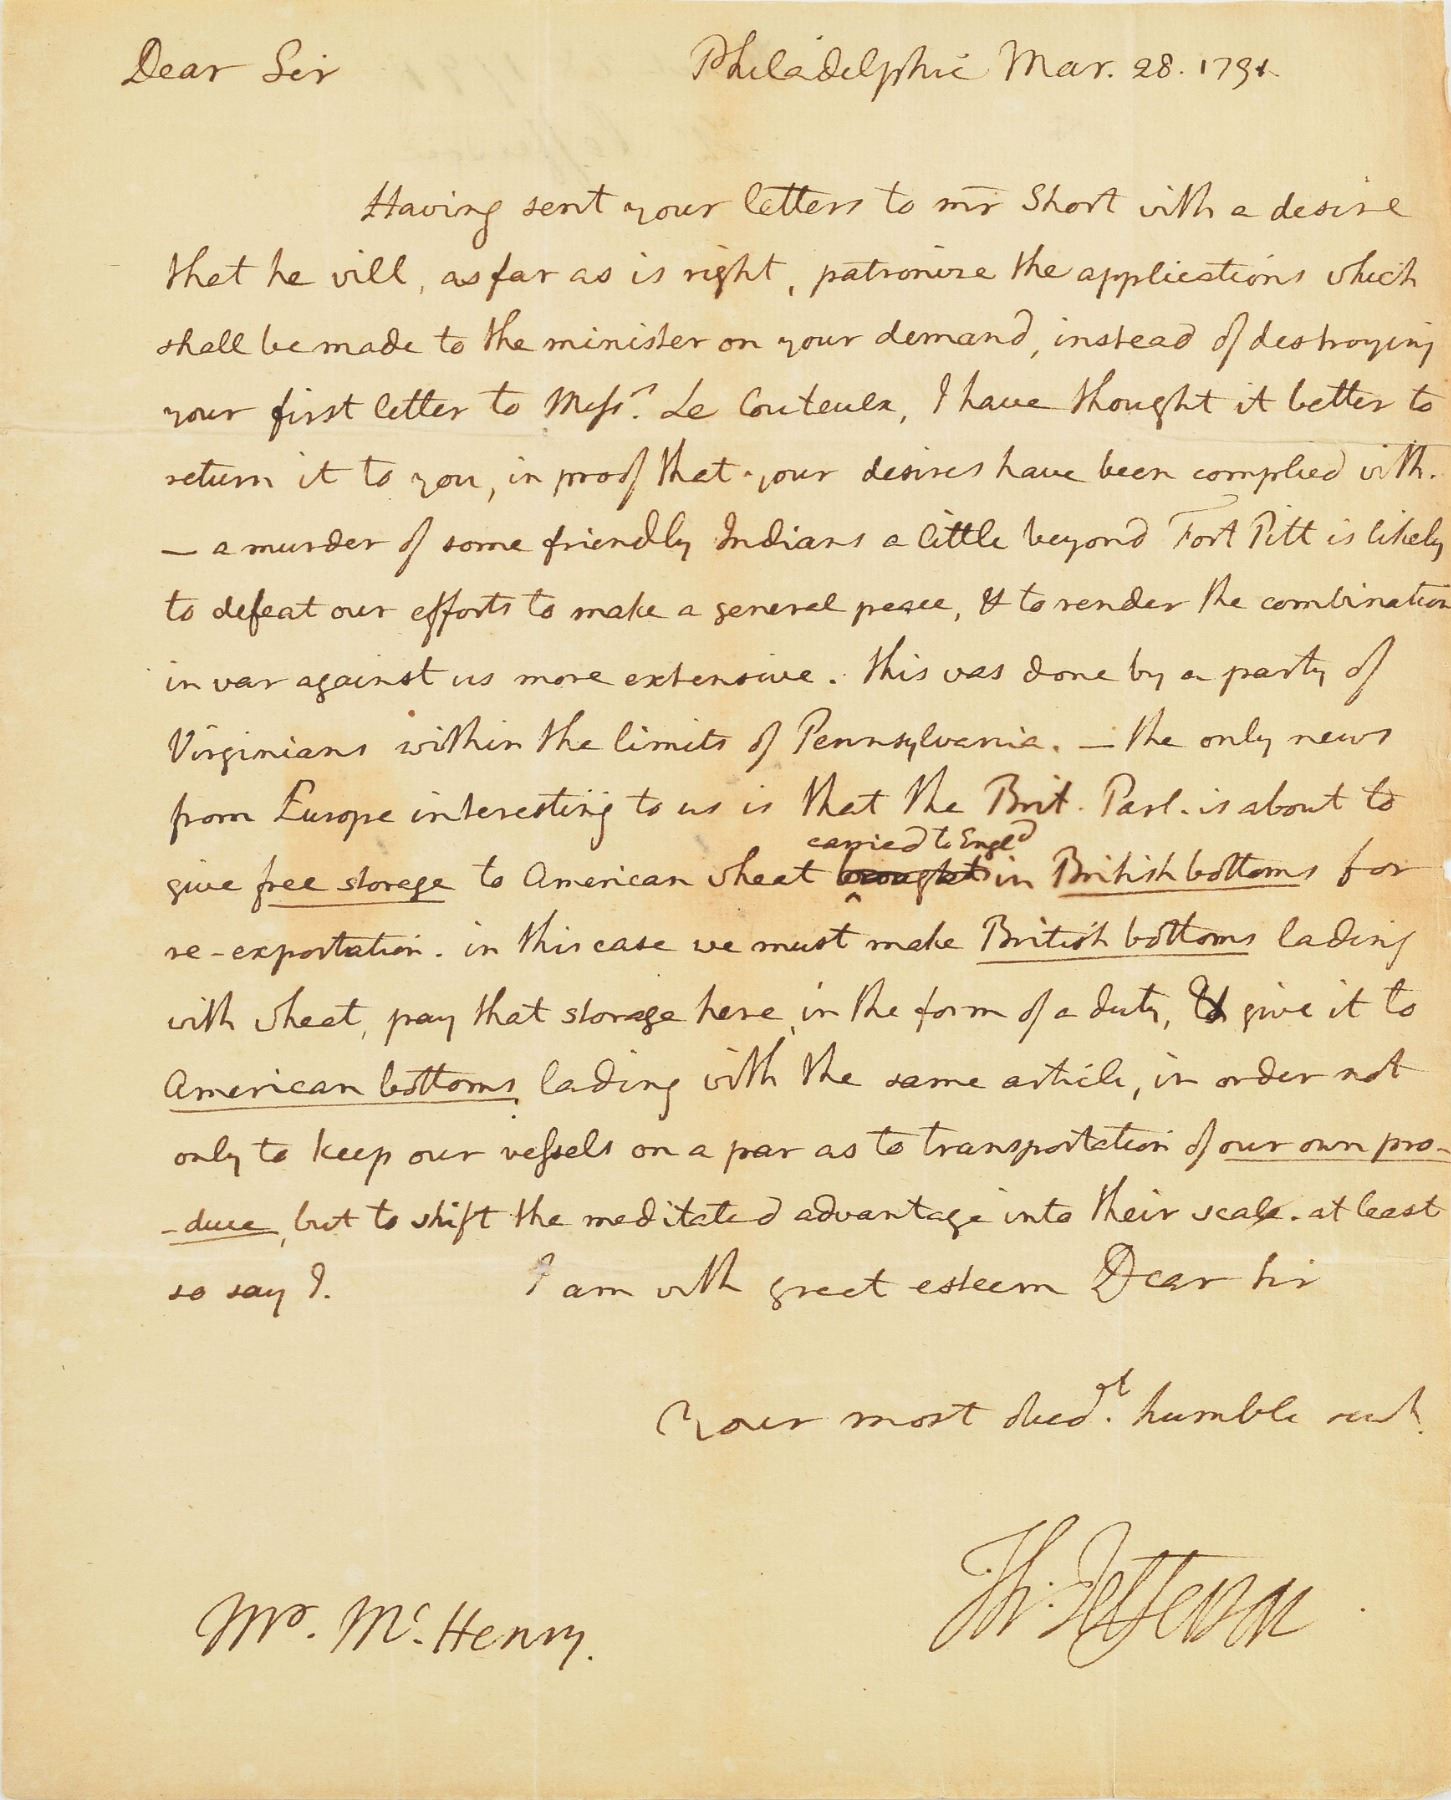 Dear Sir Philadelphia Mar. 28. 1791.
Having sent your letters to mr Short with a desire
that he will, as far as is right, patronize the applications which
shall be made to the minister on your demand, instead of destroying
your first letter to Messrs. Le Couteulx, I have thought it better to
return it to you, in proof that your desires have been complied with.
— a murder of some friendly Indians a little beyond Fort Pitt is likely
to defeat our efforts to make a general peace, & to render the combination
in war against us more extensive. this was done by a party of
Virginians within the limits of Pennsylvania. — the only news
from Europe interesting to us is that the Brit. Parl. is about to
carried to Engld
give free storage to American wheat brought in British bottoms for
re-exportation. in this case we must make British bottoms lading
with wheat, pay that storage here, in the form of a duty, & give it to
American bottoms, lading with the same article, in order not
only to keep our vessels on a par as to transportation of our own pro-
-duce, but to shift the meditated advantage into their scale. at least
so say I. I am with great esteem Dear Sir
Your most obedt. humble servt.
Th: Jefferson
Mr. Mc.Henry.